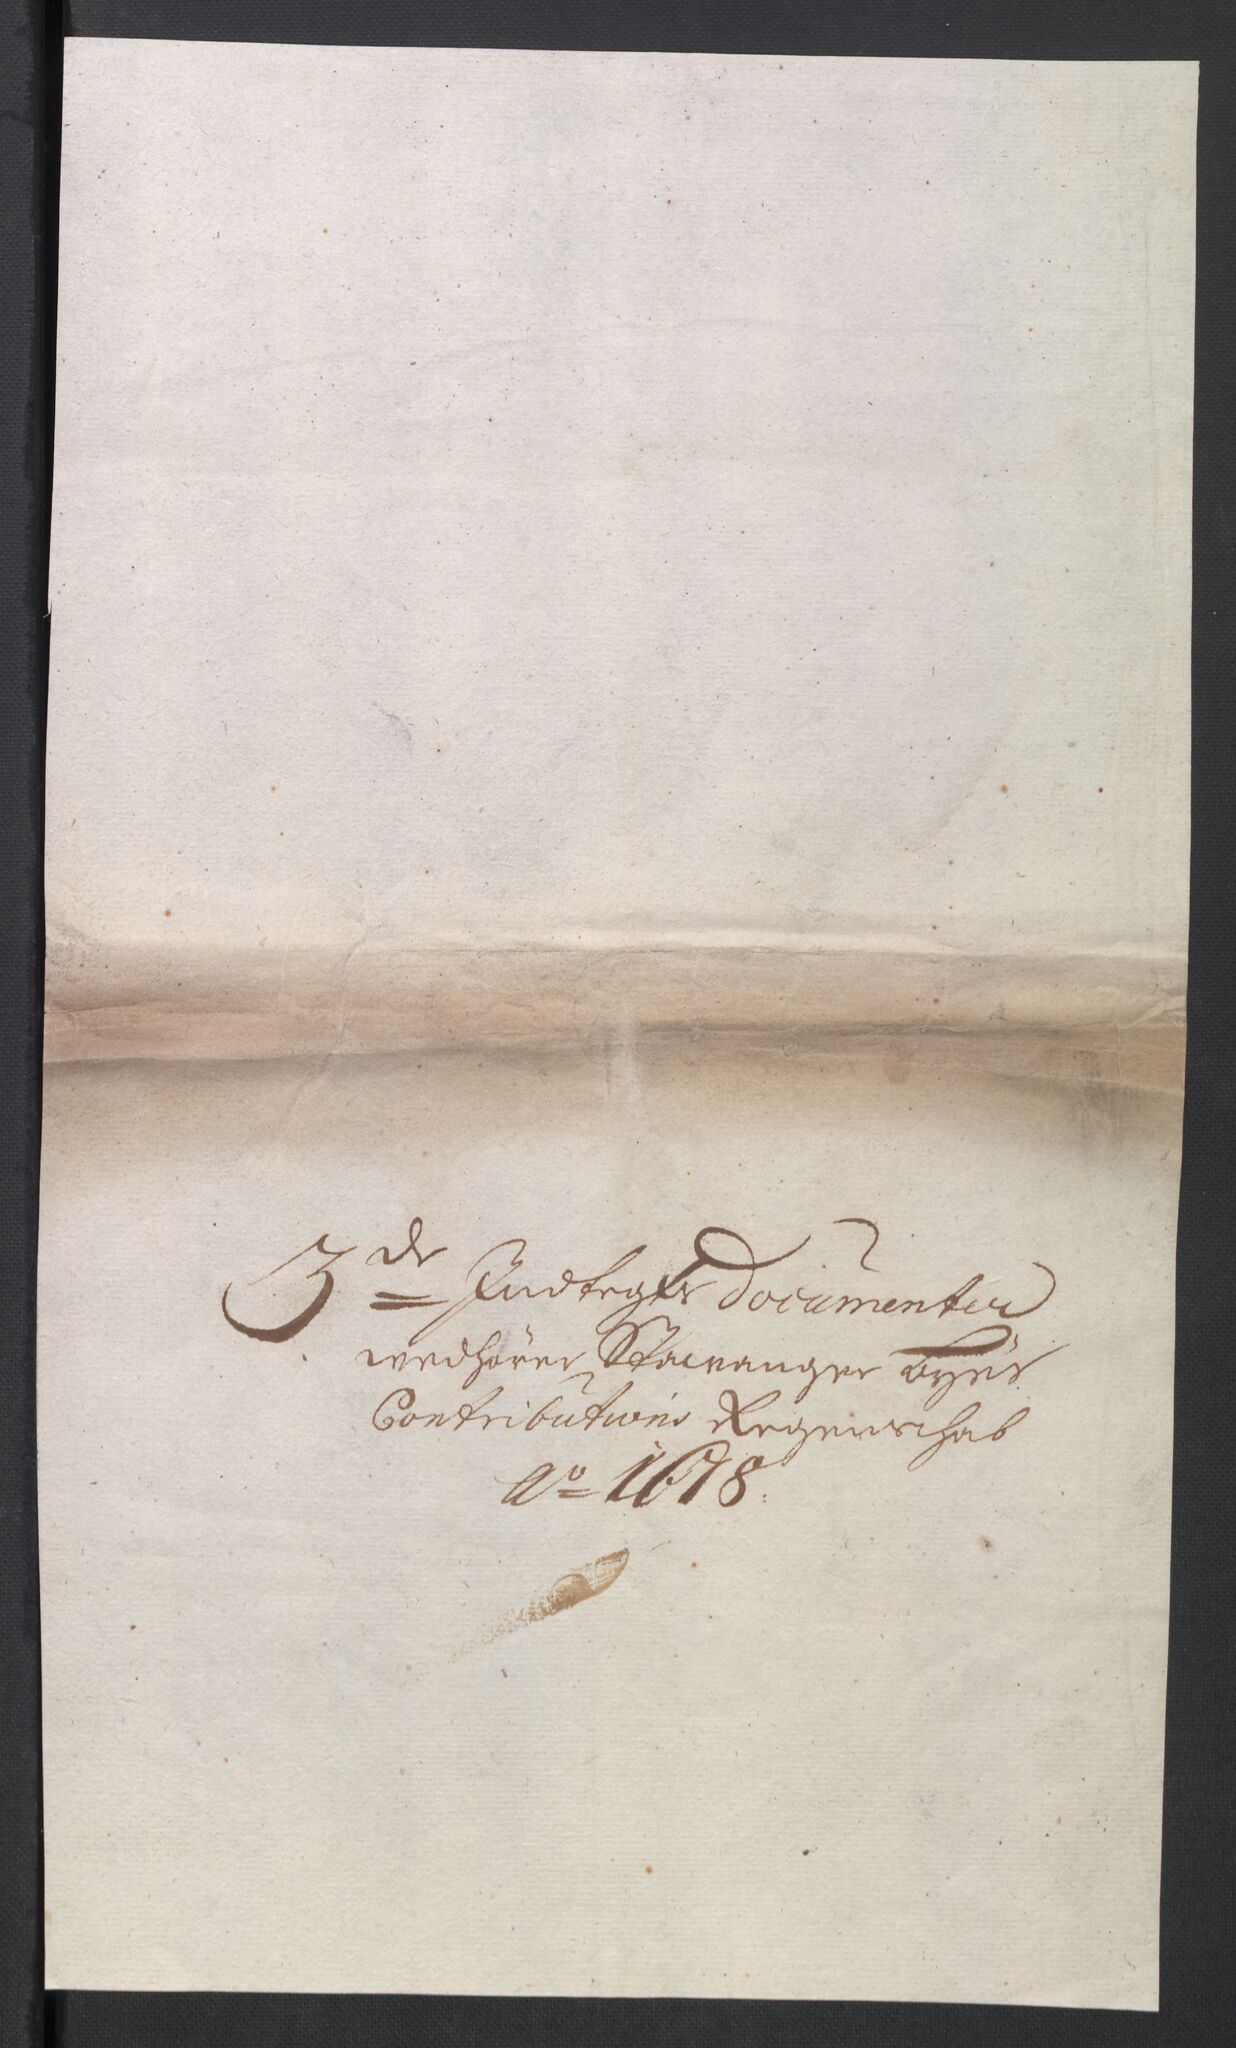 3de Indtegts Documenter
wedhörer Stavanger Byes
Contributions Regenschab
Ao 1678.